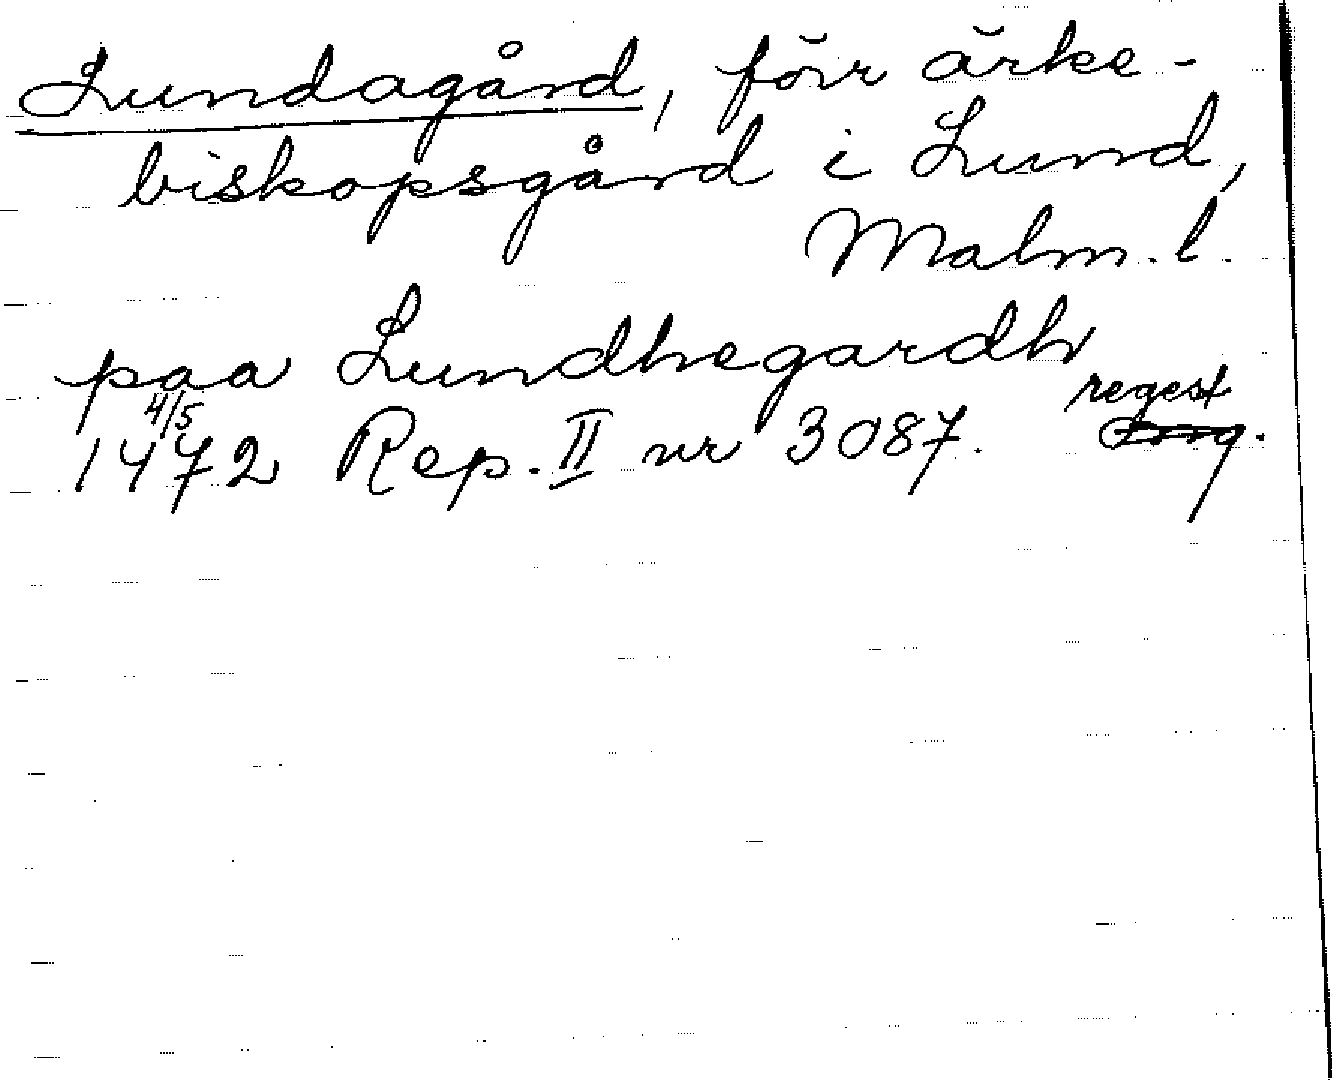 Lundagård, förr ärke-
biskopsgård i Lund,
Malm. l.
paa Lundhegardh
4/5 regest
1472 Rep. II nr 3087.